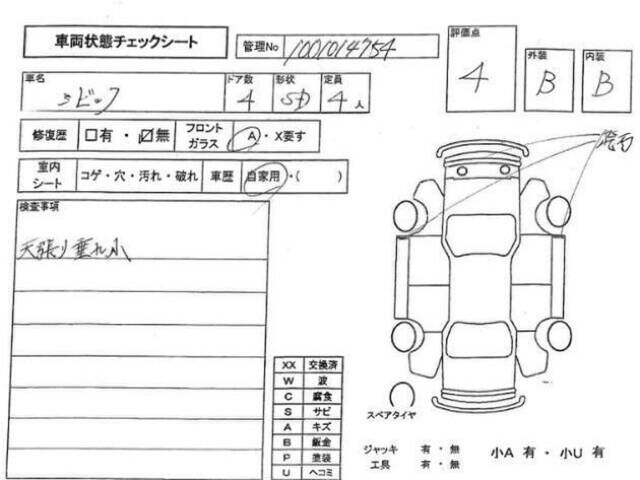 車両状態チェックシート
管理No 1001014754
評価点
4
外装
B
内装
B
車名
シビック
ドア数
4
形状
SD
定員
4人
修復歴 □有・☑無
フロントガラス
A・X要す
室内シート
コゲ・穴・汚れ・破れ
車歴
自家用・( )
検査事項
天張り垂れ小
XX 交換済
W 波
C 腐食
S サビ
A キズ
B 鈑金
P 塗装
U ヘコミ
スペアタイヤ
ジャッキ 有・無
工具 有・無
小A 有・小U 有